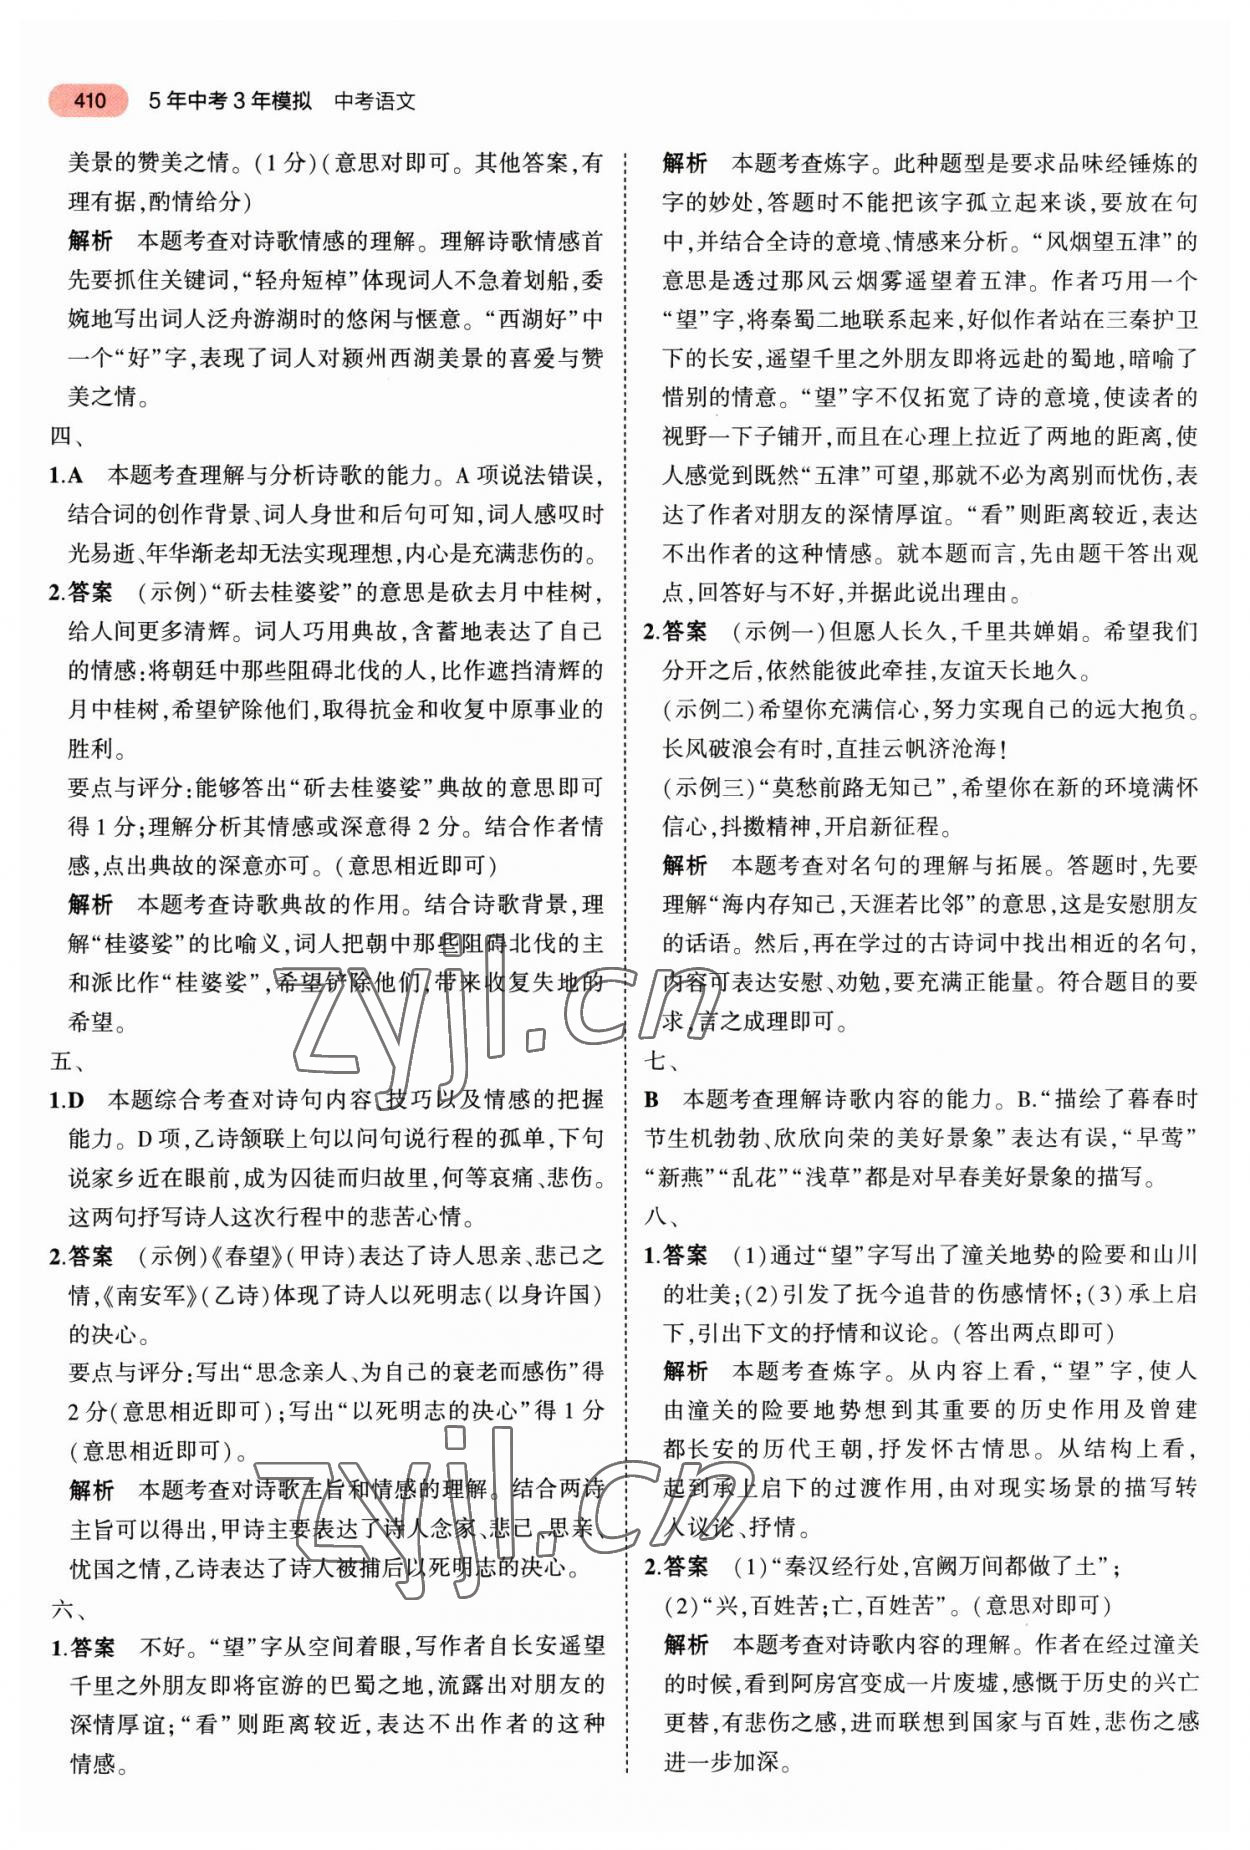 410 5年中考3年模拟 中考语文
美景的赞美之情。(1分)(意思对即可。其他答案,有
理有据,酌情给分)
解析 本题考查对诗歌情感的理解。理解诗歌情感首
先要抓住关键词,“轻舟短棹”体现词人不急着划船,委
婉地写出词人泛舟游湖时的悠闲与惬意。“西湖好”中
一个“好”字,表现了词人对颍州西湖美景的喜爱与赞
美之情。
四、
1.A 本题考查理解与分析诗歌的能力。A项说法错误,
结合词的创作背景、词人身世和后句可知,词人感叹时
光易逝、年华渐老却无法实现理想,内心是充满悲伤的。
2.答案 (示例)“斫去桂婆娑”的意思是砍去月中桂树,
给人间更多清辉。词人巧用典故,含蓄地表达了自己
的情感:将朝廷中那些阻碍北伐的人,比作遮挡清辉的
月中桂树,希望铲除他们,取得抗金和收复中原事业的
胜利。
要点与评分:能够答出“斫去桂婆娑”典故的意思即可
得1分;理解分析其情感或深意得2分。结合作者情
感,点出典故的深意亦可。(意思相近即可)
解析 本题考查诗歌典故的作用。结合诗歌背景,理
解“桂婆娑”的比喻义,词人把朝中那些阻碍北伐的主
和派比作“桂婆娑”,希望铲除他们,带来收复失地的
希望。
五、
1.D 本题综合考查对诗句内容、技巧以及情感的把握
能力。D项,乙诗颔联上句以问句说行程的孤单,下句
说家乡近在眼前,成为囚徒而归故里,何等哀痛、悲伤。
这两句抒写诗人这次行程中的悲苦心情。
2.答案 (示例)《春望》(甲诗)表达了诗人思亲、悲己之
情,《南安军》(乙诗)体现了诗人以死明志(以身许国)
的决心。
要点与评分:写出“思念亲人、为自己的衰老而感伤”得
2分(意思相近即可);写出“以死明志的决心”得1分
(意思相近即可)。
解析 本题考查对诗歌主旨和情感的理解。结合两诗
主旨可以得出,甲诗主要表达了诗人念家、悲己、思亲、
忧国之情,乙诗表达了诗人被捕后以死明志的决心。
六、
1.答案 不好。“望”字从空间着眼,写作者自长安遥望
千里之外朋友即将宦游的巴蜀之地,流露出对朋友的
深情厚谊;“看”则距离较近,表达不出作者的这种
情感。
解析 本题考查炼字。此种题型是要求品味经锤炼的
字的妙处,答题时不能把该字孤立起来谈,要放在句
中,并结合全诗的意境、情感来分析。“风烟望五津”的
意思是透过那风云烟雾遥望着五津。作者巧用一个
“望”字,将秦蜀二地联系起来,好似作者站在三秦护卫
下的长安,遥望千里之外朋友即将远赴的蜀地,暗喻了
惜别的情意。“望”字不仅拓宽了诗的意境,使读者的
视野一下子铺开,而且在心理上拉近了两地的距离,使
人感觉到既然“五津”可望,那就不必为离别而忧伤,表
达了作者对朋友的深情厚谊。“看”则距离较近,表达
不出作者的这种情感。就本题而言,先由题干答出观
点,回答好与不好,并据此说出理由。
2.答案 (示例一)但愿人长久,千里共婵娟。希望我们
分开之后,依然能彼此牵挂,友谊天长地久。
(示例二)希望你充满信心,努力实现自己的远大抱负。
长风破浪会有时,直挂云帆济沧海!
(示例三)“莫愁前路无知己”,希望你在新的环境满怀
信心,抖擞精神,开启新征程。
解析 本题考查对名句的理解与拓展。答题时,先要
理解“海内存知己,天涯若比邻”的意思,这是安慰朋友
的话语。然后,再在学过的古诗词中找出相近的名句,
内容可表达安慰、劝勉,要充满正能量。符合题目的要
求,言之成理即可。
七、
B 本题考查理解诗歌内容的能力。B.“描绘了暮春时
节生机勃勃、欣欣向荣的美好景象”表达有误,“早莺”
“新燕”“乱花”“浅草”都是对早春美好景象的描写。
八、
1.答案 (1)通过“望”字写出了潼关地势的险要和山川
的壮美;(2)引发了抚今追昔的伤感情怀;(3)承上启
下,引出下文的抒情和议论。(答出两点即可)
解析 本题考查炼字。从内容上看,“望”字,使人
由潼关的险要地势想到其重要的历史作用及曾建
都长安的历代王朝,抒发怀古情思。从结构上看,
起到承上启下的过渡作用,由对现实场景的描写转
入议论、抒情。
2.答案 (1)“秦汉经行处,宫阙万间都做了土”;
(2)“兴,百姓苦;亡,百姓苦”。(意思对即可)
解析 本题考查对诗歌内容的理解。作者在经过潼关
的时候,看到阿房宫变成一片废墟,感慨于历史的兴亡
更替,有悲伤之感,进而联想到国家与百姓,悲伤之感
进一步加深。
zyjl.cn
zyjl.cn